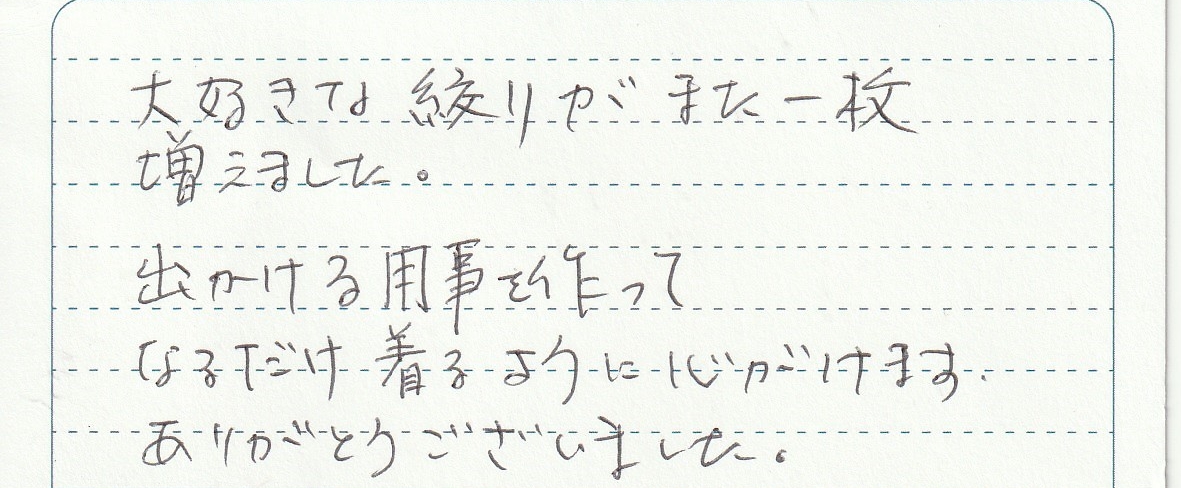 大好きな絞りがまた一枚
増えました。
出かける用事を作って
なるだけ着るように心がけます.
ありがとうございました。